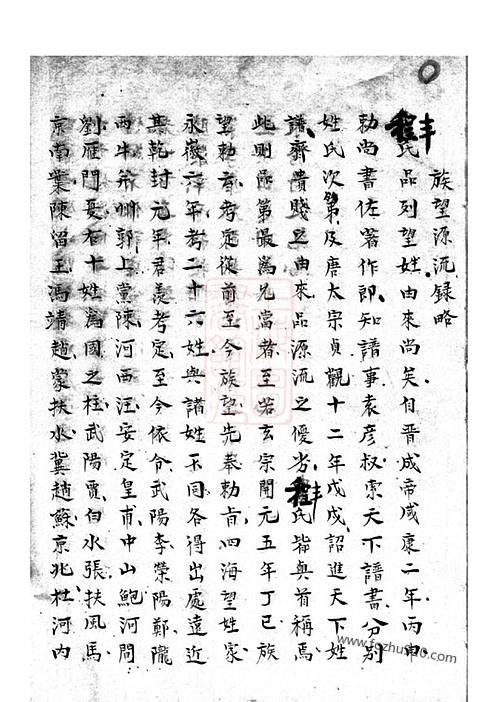 族望源流録略
程氏品列望姓由來尚矣自晋成帝咸康二年丙申
勅尚書佐著作郎知譜事袁彦叔索天下譜書分别
姓氏次第及唐太宗貞觀十二年戊戌詔進天下姓
譜齊貴賤之由來品源流之優劣程氏皆與首稱焉
此則品第最為允當者至若玄宗開元五年丁巳族
望勅旨考定從前至今族望先奉勅旨四海望姓家
永徽六年考二十六姓與諸姓不同各得出處遠近
其乾封元年君羡考定至今依令武陽李滎陽鄭隴
西牛并州郭上黨陳河西汪安定皇甫中山鮑河間
劉雁門夏右十姓為國之柱武陽賈白水張扶風馬
京南葉陳留王馮靖趙蒙扶水冀趙蘇京兆杜河内
丰
丰
www.fszhu00.com